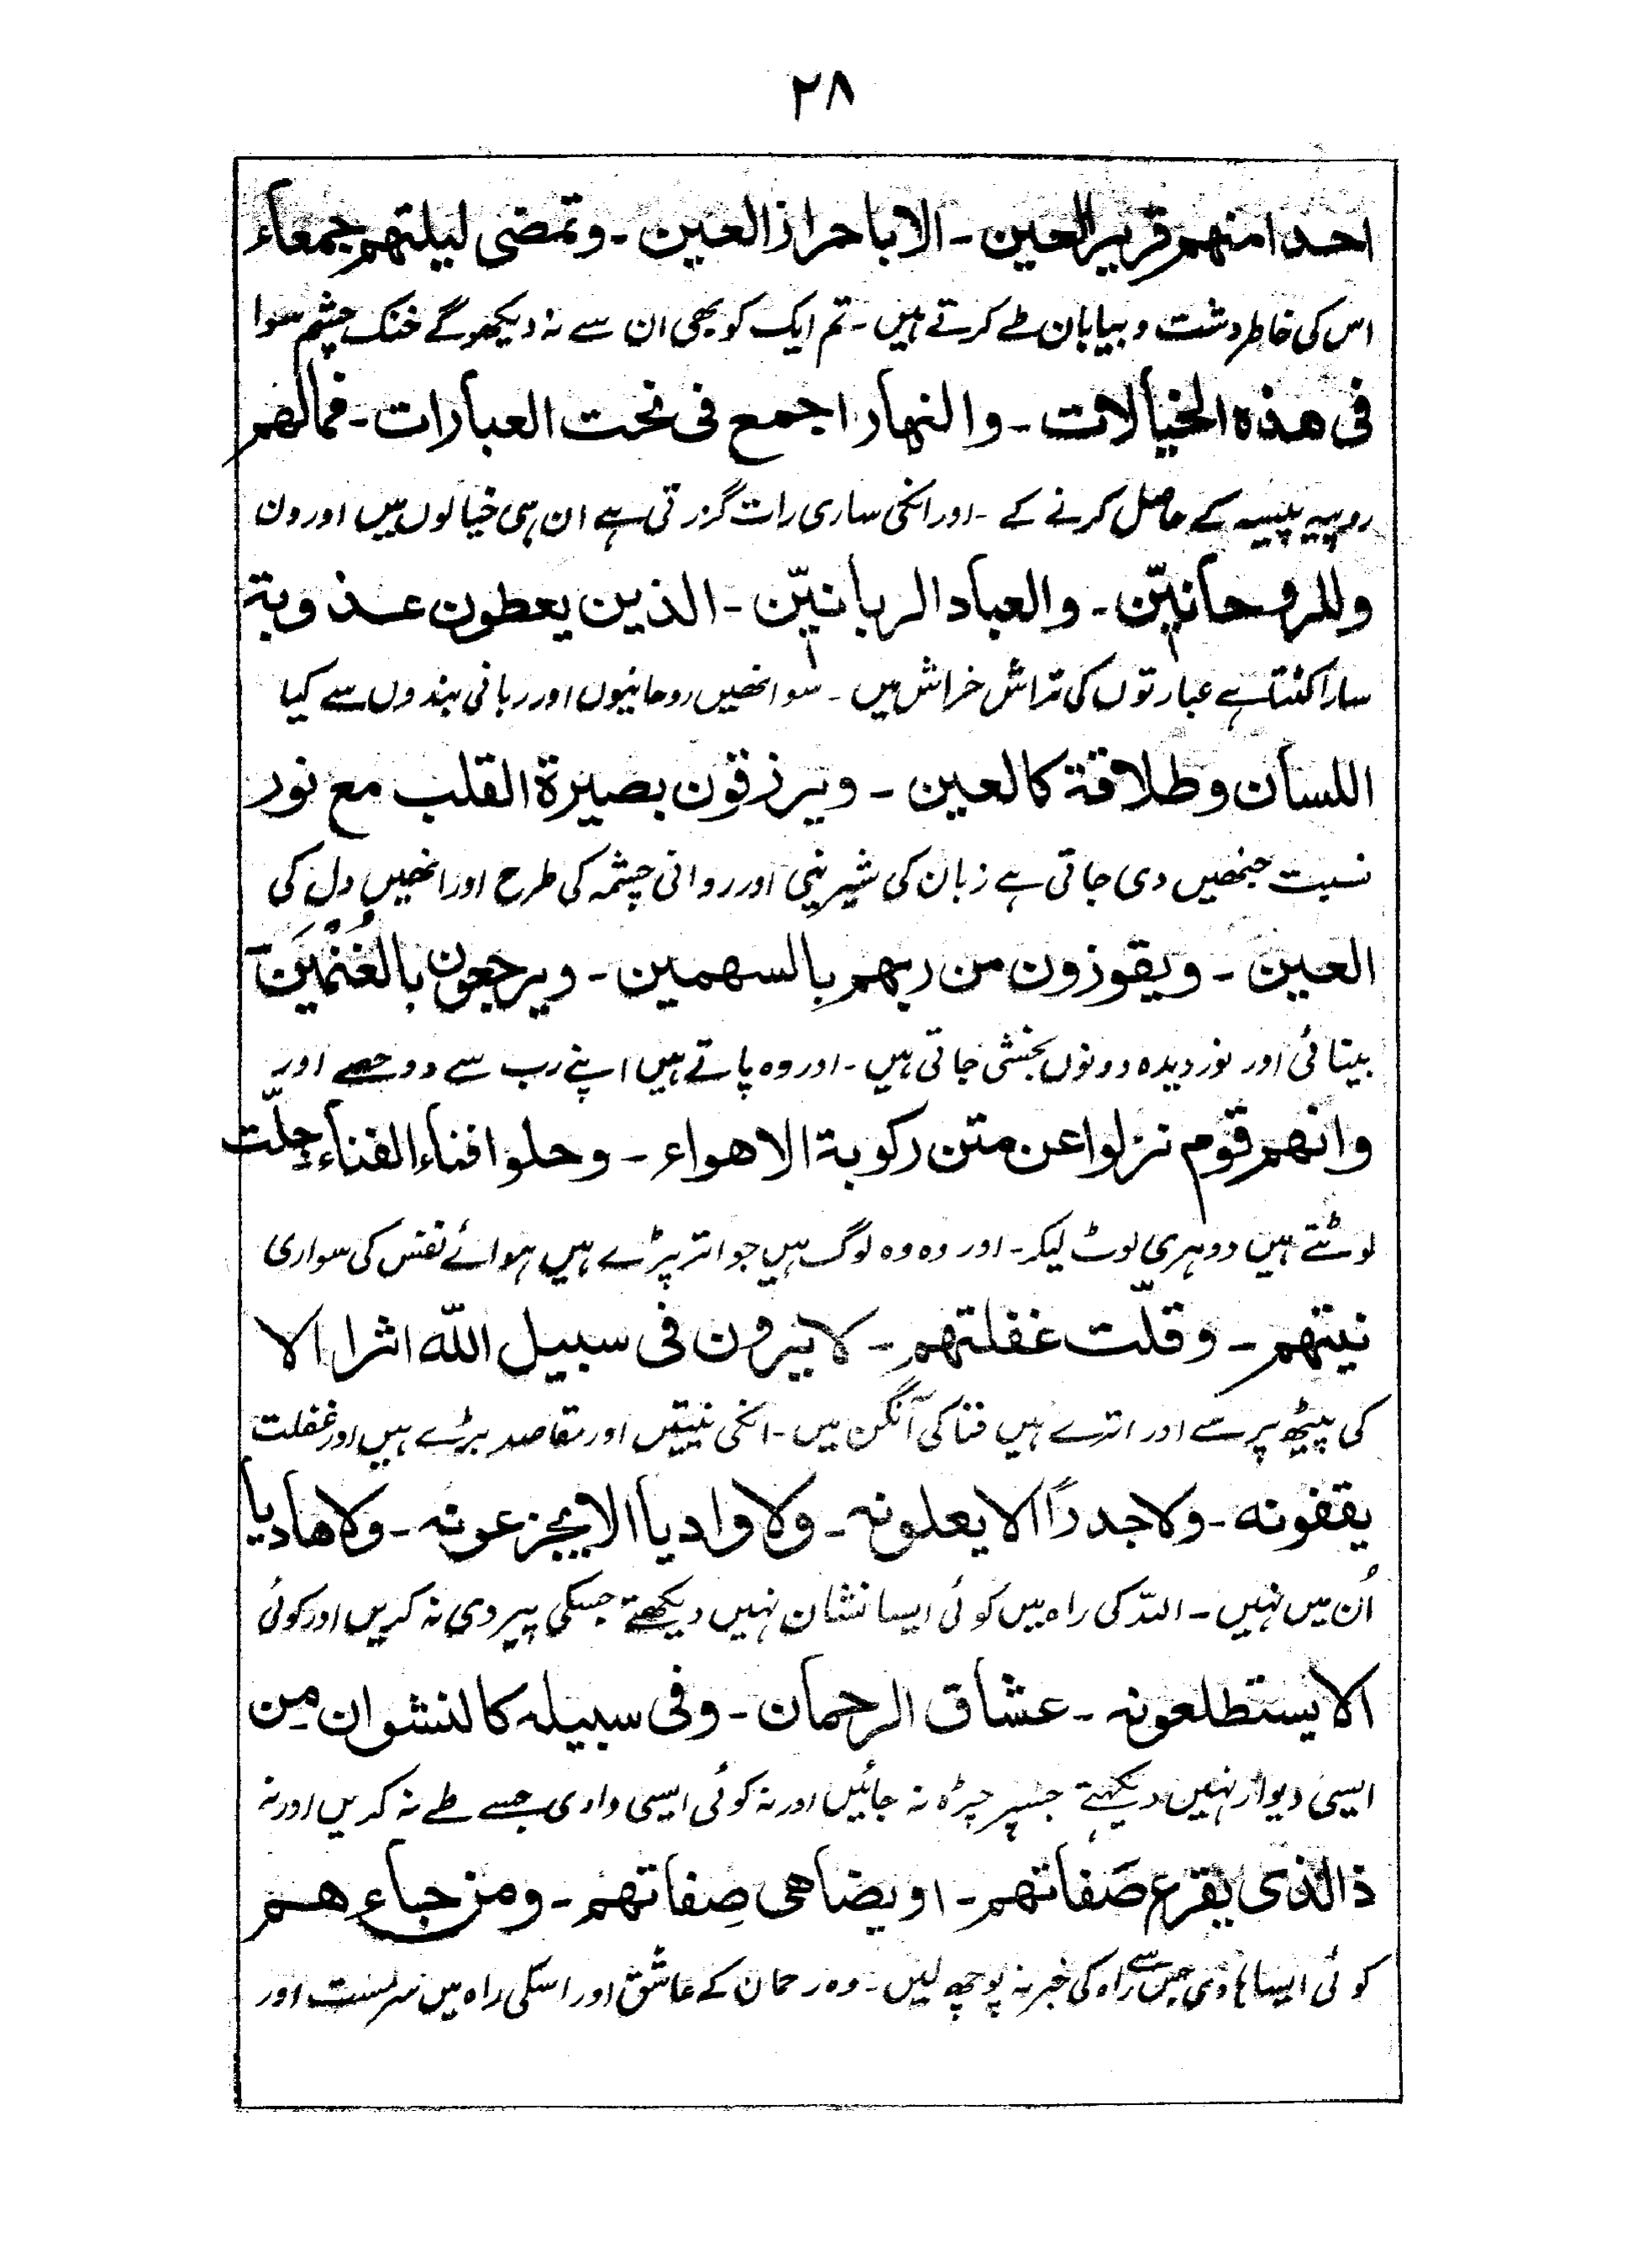 ۲۸
احدا منهم قرير العين - الا باحراز العين - وتمضى ليلتهم جمعاء
اس کی خاطر دشت و بیابان طے کرتے ہیں - تم ایک کو بھی ان سے نہ دیکھو گے خنک چشم سوا
فى هذه الخيالات - والنهار اجمع فى نحت العبارات - فمالهم
روپیہ پیسہ کے حاصل کرنے کے - اور انکی ساری رات گزرتی ہے ان ہی خیالوں میں اور دن
وللروحانيّن - والعباد الربانيّن - الذين يعطون عذوبة
سارا کٹتا ہے عبارتوں کی تراش خراش میں - سو انھیں روحانیوں اور ربانی بندوں سے کیا
اللسان وطلاقة كالعين - ويرزقون بصيرة القلب مع نور
نسبت جنھیں دی جاتی ہے زبان کی شیرینی اور روانی چشمہ کی طرح اور انھیں دل کی
العين - ويفوزون من ربهم بالسهمين - ويرجعون بالغُنْمَيَن
بینائی اور نور دیدہ دونوں بخشی جاتی ہیں - اور وہ پاتے ہیں اپنے رب سے دو حصے اور
وانهم قوم نزلوا عن متن ركوبة الاهواء - وحلوا فناء الفناء جلّت
لوٹتے ہیں دوہری لوٹ لیکر - اور وہ وہ لوگ ہیں جو اتر پڑے ہیں ہوائے نفس کی سواری
نيتهم - وقلّت غفلتهم - لا يرون فى سبيل الله اثرا الا
کی پیٹھ پر سے اور اترے ہیں فنا کی آنگن میں - انکی نیتیں اور مقاصد بڑے ہیں اور غفلت
يقفونه - ولا جدرًا الا يعلونه - ولا واديا الا يجزعونه - ولا هاديا
اُن میں نہیں - اللہ کی راہ میں کوئی ایسا نشان نہیں دیکھتے جسکی پیروی نہ کریں اور کوئی
الا يستطلعونه - عشاق الرحمان - وفى سبيله كالنشوان مِن
ایسی دیوار نہیں دیکہتے جسپر چڑہ نہ جائیں اور نہ کوئی ایسی وادی جسے طے نہ کریں اور نہ
ذا الذى يقرع صَفاتهم - او يضاهى صِفاتهم - ومن جاءهم
کوئی ایسا ہادی جس سے راہ کی خبر نہ پوچھ لیں - وہ رحمان کے عاشق اور اسکی راہ میں سرمست اور